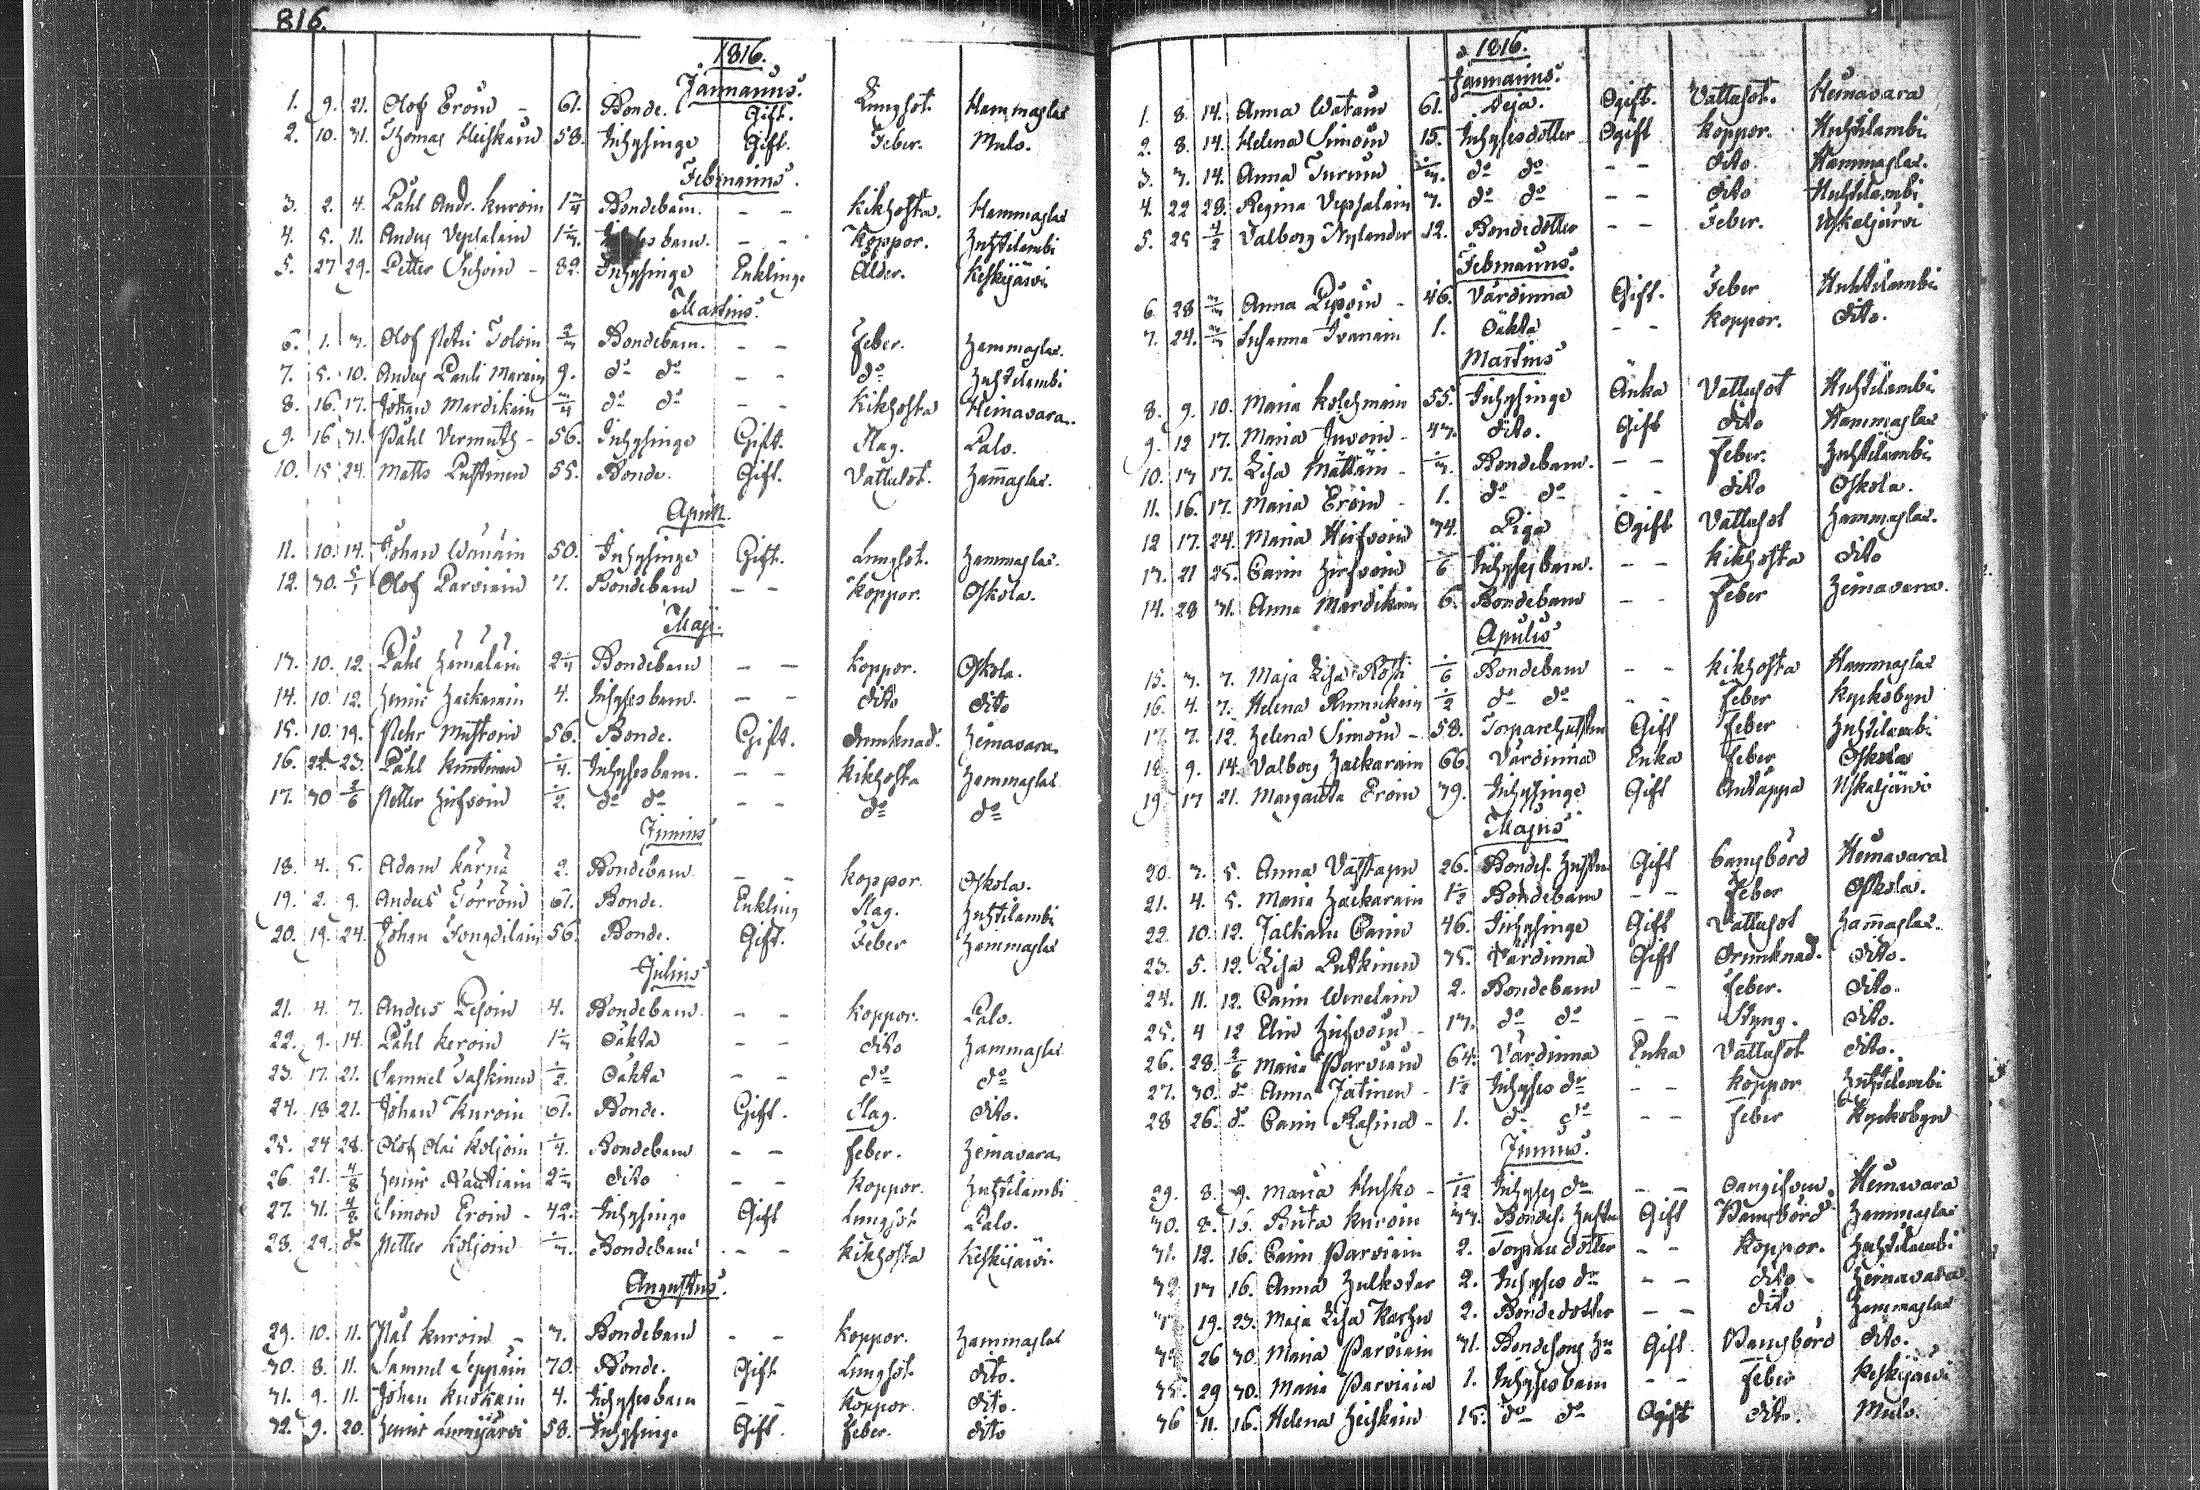 816.
1816.
Januarius.
1. 9. 21. Olof Eroin - 61. Bonde. Gift. Lungsot. Hammaslax
2. 10. 31. Thomas Heiskain 58. Inhysinge Gift. Feber. Mulo.
Februarius.
3. 2. 4. Påhl Andr. Kuroin Bondebarn. - - Kikhosta. Hammaslax
4. 5. 11. Anders Vepsalain barn. - - Koppor. Huhtilambi
5. 27 29. Petter Ihoin - 82. Inhysinge Enkling Ålder. Keskijärvi
Martius.
6. 1. 3. Olof Petri Toloin Bondebarn. - - Feber. Hammaslax.
7. 5. 10. Anders Pauli Marain 9. do do - - do Huhtilambi
8. 16. 17. Johan Mardikain do do - - Kikhosta Heinavara.
9. 16 31. Påhl Vermuth - 56. Inhysinge Gift. Slag. Palo.
10. 15 24. Matts Puttinen 55. Bonde. Gift. Vattusot. Hammaslax.
April.
11. 10. 14. Johan Wänäin 50. Inhysinge Gift. Lungsot. Hammaslax.
12. 30. 5/1 Olof Parviain 7. Bondebarn - - Koppor. Oskola.
Maji.
13. 10. 12. Påhl Hämäläin Bondebarn - - Koppor. Oskola.
14. 10. 12. Henric Zackarain 4. Inhyses barn. - - dito dito
15. 10. 19. Pehr Mustoin 56. Bonde. Gift. drunknad. Heinavara.
16. 22. 23. Påhl Kinttinen 1/4. Inhyses barn. - - Kikhosta Hammaslax
17. 30 2/6 Petter Hirfvoin 1/2. do do - - do do
Junius
18. 4. 5. Adam Kärnä 2. Bondebarn - - Koppor. Oskola.
19. 2. 9. Anders Törröin 61. Bonde. Enkling Slag. Huhtilambi
20. 19. 24. Johan Tongdilain 56. Bonde. Gift. Feber Hammaslax
Julius
21. 4. 7. Anders Pesoin 4. Bondebarn. - - Koppor. Palo.
22. 9. 14. Påhl Keroin Oäkta - - dito Hammaslax
23. 17. 21. Samuel Taskinen 1/2. Oäkta - - do do
24. 18 21. Johan Kuroin 61. Bonde. Gift. Slag. dito.
25. 24 28. Olof Olai Koljoin 1/4. Bondebarn - - Feber. Heinavara
26. 21. 4/8 Henric Nautiain dito - - Koppor. Huhtilambi
27. 31. 4/8 Simon Eroin - 42. Inhysinge Gift Lungsot Palo.
28. 29. do Petter Koljoin Bondebarn - - Kikhosta Keskijärvi.
Augustus.
29. 10. 11. Pål Kuroin - 3. Bondebarn - - Koppor. Hammaslax
30. 8. 11. Samuel Seppäin 70. Bonde. Gift Lungsot. dito.
31. 9. 11. Johan Kuokain 4. Inhyses barn - - Koppor. dito.
32. 9. 20. Henric Lumijärvi 58. Inhysinge Gift. Feber. dito
1816.
Januarius.
1. 8. 14. Anna Watain 61. Deja. Ogift. Vattusot. Heinavara
2. 8. 14. Helena Simoin 15. Inhysesdotter Ogift Koppor. Huhtilambi
3. 3. 14. Anna Turuin do do - - dito. Hammaslax.
4. 22 28. Regina Vepsalain 3. do do - - dito Huhtilambi
5. 25 4/2 Valborg Nylander 12. Bondedotter - - Feber. Uskaljärvi
Februarius.
6. 28 Anna Pesoin - 46. Värdinna Gift. Feber Huhtilambi
7. 24. Susanna Ivanain 1. Oäkta - - Koppor. dito.
Martius
8. 9. 10. Maria Kolehmain 55. Inhysinge Änka Vattusot Huhtilambi
9. 12 17. Maria Juvoin - 43. dito. Gift dito Hammaslax
10. 13 17. Lisa Mättäin - Bondebarn. - - Feber. Huhtilambi
11. 16. 17. Maria Eroin - 1. do do - - dito Oskola.
12 17. 24. Maria Hirfvoin 34. Piga Ogift Vattusot Hammaslax.
13. 21 25. Carin Hirfvoin 1/6 Inhyses barn. - - Kikhosta dito
14. 28 31. Anna Mardikain 6. Bondebarn - - Feber Heinavara.
Aprilis
15. 3. 7. Maja Lisa Rösti 1/6 Bondebarn - - Kikhosta Hammaslax
16. 4. 7. Helena Rummukain 1/2 do do - - Feber Kyrkobyn
17 7. 12. Helena Simoin - 58. Torparehustru Gift Feber Huhtilambi
18 9. 14. Valborg Zackarain 66. Värdinna Enka Feber Oskola
19 17 21. Margareta Eroin 39. Inhysinge Gift Andtäppa Uskaljärvi
Majus
20. 3. 5. Anna Västapu 26. Bondes. Hustru Gift Barnsbörd Heinavara
21. 4. 5. Maria Zackarain 1 1/2 Bondebarn - - Feber Oskola.
22. 10. 12. Jalkain Carin 46. Inhysinge Gift Vattusot Hammaslax.
23. 5. 12. Lisa Putkinen 35. Värdinna Gift Drunknad. dito.
24. 11. 12. Carin Wenelain 2. Bondebarn - - Feber. dito.
25. 4 12 Elin Hirfvoin - 13. do do - - Styng. dito.
26. 28. 2/6 Maria Parviain 64. Värdinna Enka Vattusot dito.
27. 30. do Anna Jatinen - 1 1/2 Inhyses do - - Koppor Huhtilambi
28 26. do Carin Rasina - 1. do do - - Feber Kyrkobyn
Junius.
29. 8. 9. Maria Husko - 1/12 Inhyses do - - Oangifven. Heinavara
30. 8. 15. Brita Kuroin 33. Bondes. Hustru Gift Barnsbörd Hammaslax
31. 12. 16. Carin Parviain 2. Torparedotter - - Koppor. Huhtilambi
32 13 16. Anna Hulkodar 2. Inhyses do - - dito Heinavara
19. 23. Maja Lisa Karhu 2. Bondedotter - - dito Hammaslax
34 26 30 Maria Parviain 31. Bondesons Hu Gift Barnsbörd dito.
35. 29 30. Maria Parviain 1. Inhyses barn - - Feber Keskijärvi
36 11. 16. Helena Heiskain 15. do do Ogift dito. Mulo.